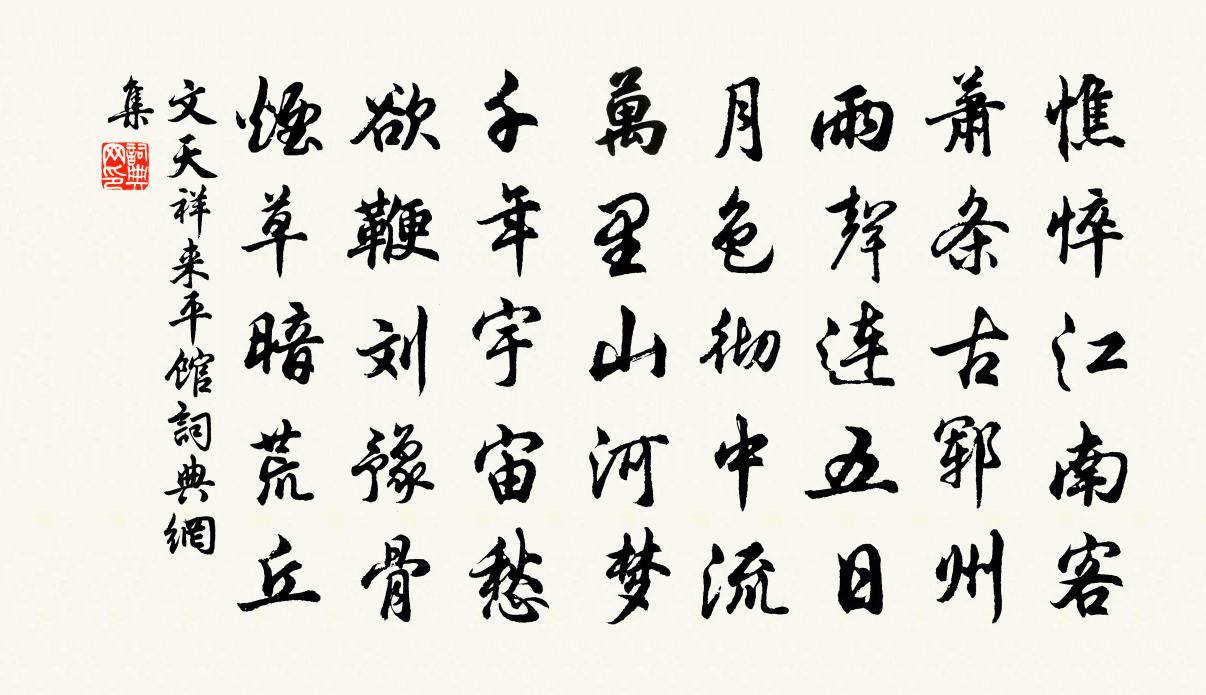 憔悴江南客
萧条古鄆州
雨聲連五日
月色彻中流
萬里山河梦
千年宇宙愁
欲鞭刘豫骨
煙草暗荒丘
文天祥来平馆詞典網
集
詞典网印